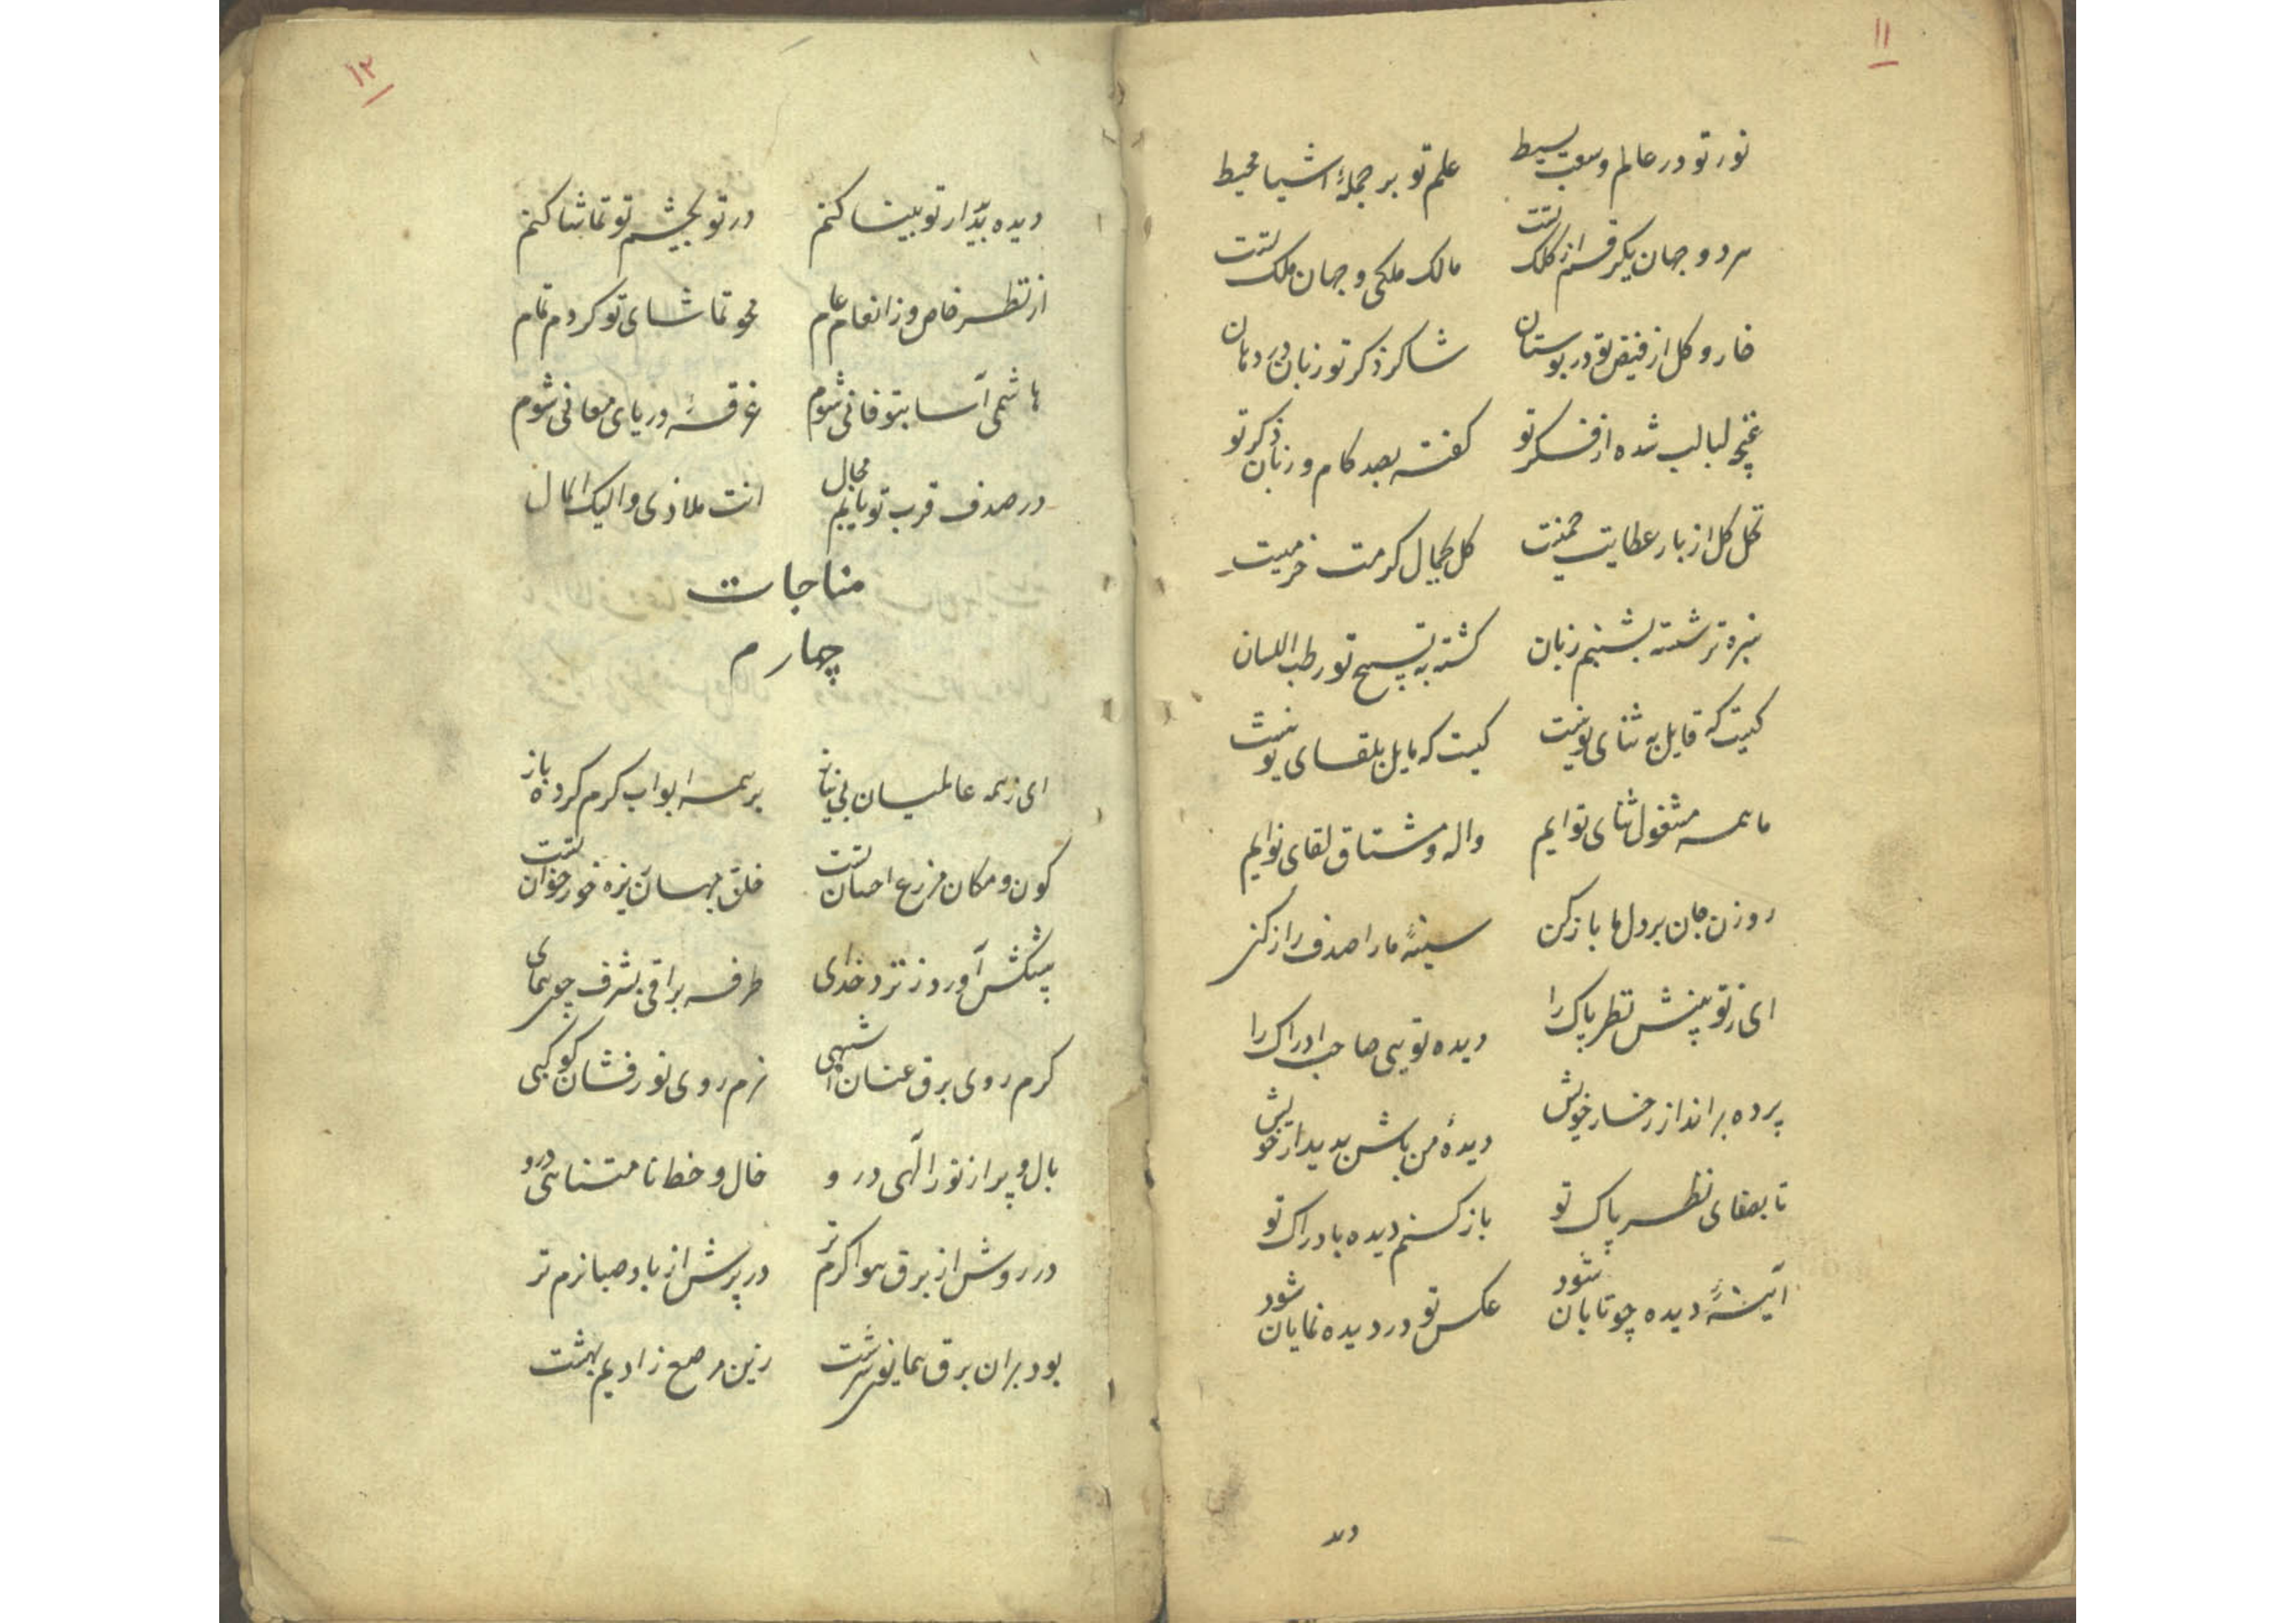 ۱۱
نور تو در عالم وسعت بسیط علم تو بر جملهٔ اشیا محیط
هر دو جهان یکرقم از کلک تست مالک ملکی و جهان ملک تست
خار و کل از فیض تو در بوستان شاکر ذکر تو زبان در دهان
غنچه لبالب شده از فکر تو کفته بصد کام و زبان ذکر تو
نخل کل از بار عطایت کل کمال کرمت
سبزه تر شسته بشبنم زبان کشته به تسبیح تو رطب اللسان
کیست که قایل به ثنای تو نیست کیست که مایل بلقای تو نیست
ما همه مشغول ثنای توایم واله و مشتاق لقای توایم
روزن جان بر دل ما باز کن سینهٔ ما را صدف راز کن
ای ز تو بینش نظر پاک را دیده تویی صاحب ادراک را
پرده برانداز ز رخسار خویش دیدهٔ من باش بدیدار خویش
تا بصفای نظر پاک تو باز کنم دیده بادراک تو
آیینهٔ دیده چو تابان شود عکس تو در دیده نمایان شود
دیده
۱۲
دیده بدیدار تو بینا کنم در تو بچشم تو تماشا کنم
از نظر خاص و ز انعام عام محو تماشای تو کردم تمام
هاشمی آسا بتو فانی شوم غرقهٔ دریای معانی شوم
در صدف قرب تو یابم مجال انت ملاذی و الیک المال
مناجات
چهارم
ای ز همه عالمیان بی نیاز بر همه ابواب کرم کرده باز
کون و مکان مزرع احسان تست خلق جهان ریزه خور خوان تست
پیشکش آورد ز نزد خدای طرفه براقی بشرف چون همای
کرم روی برق عنان اشهبی نرم روی نور فشان کوکبی
بال و پر از نور الهی درو خال و خط نامتناهی درو
در روش از برق هوا کرم تر در پرش از باد صبا نرم تر
بود بران برق همایون سرشت زین مرصع ز ادیم بهشت